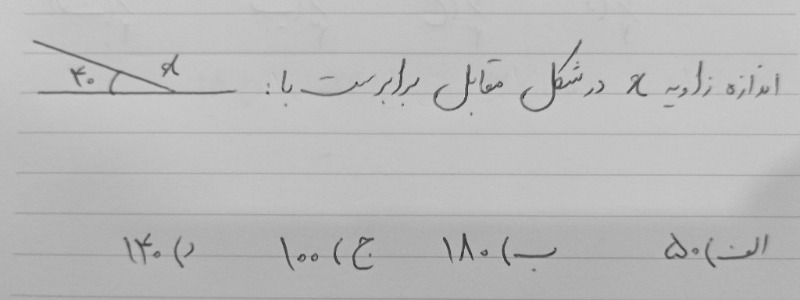 اندازه زاویه x در شکل مقابل برابرست با:
x ۴۰
الف) ۵۰ ب) ۱۸۰ ج) ۱۰۰ د) ۱۴۰